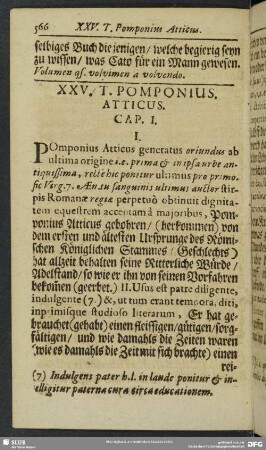 566 XXV. T. Pomponius Atticus.
selbiges Buch diejenigen / welche begierig seyn
zu wissen / was Cato für ein Mann gewesen.
Volumen qs. volvimen a volvendo.
XXV. T. POMPONIUS.
ATTICUS.
CAP. I.
I.
POmponius Atticus generatus oriundus ab
ultima origine i.e. prima & in ipsa urbe an-
tiquissima, recte hic ponitur ultimus pro primo
sic Virg. 7. Æn. tu sanguinis ultimus auctor stir-
pis Romanæ regiæ perpetuò obtinuit dignita-
tem equestrem acceptam à majoribus, Pom-
ponius Atticus gebohren / (herkommen) von
dem ersten und ältesten Ursprunge des Römi-
schen Königlichen Stammes / Geschlechts)
hat allzeit behalten seine Ritterliche Würde /
Adelstand / so wie er ihn von seinen Vorfahren
bekomen (geerbet.) II. Usus est patre diligente,
indulgente (7.) &, ut tum erant tempora, diti,
inprimisque studioso literarum, Er hat ge-
brauchet (gehabt) einen fleissigen / gütigen / sorg-
fältigen / und wie damahls die Zeiten waren
(wie es damahls die Zeit mit sich brachte) einen
rei-
(7) Indulgens pater h.l. in laude ponitur & in-
telligitur paterna cura circa educationem.
SLUB
DFG